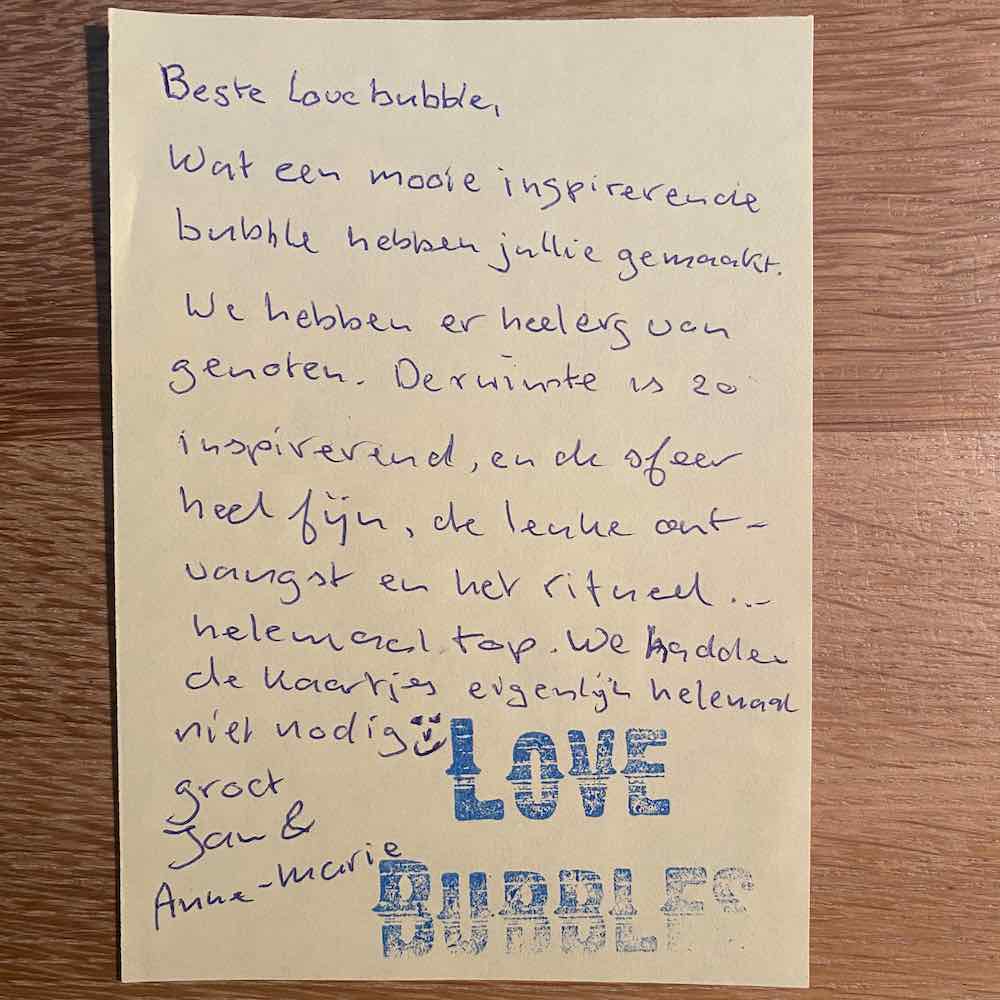 Beste Lovebubble,
Wat een mooie inspirerende
bubble hebben jullie gemaakt.
We hebben er heel erg van
genoten. De ruimte is zo
inspirerend, en de sfeer
heel fijn, de leuke ont-
vangst en het ritueel...
helemaal top. We hadden
de kaartjes eigenlijk helemaal
niet nodig
groet
Jan &
Anne-Marie
LOVE
BUBBLES